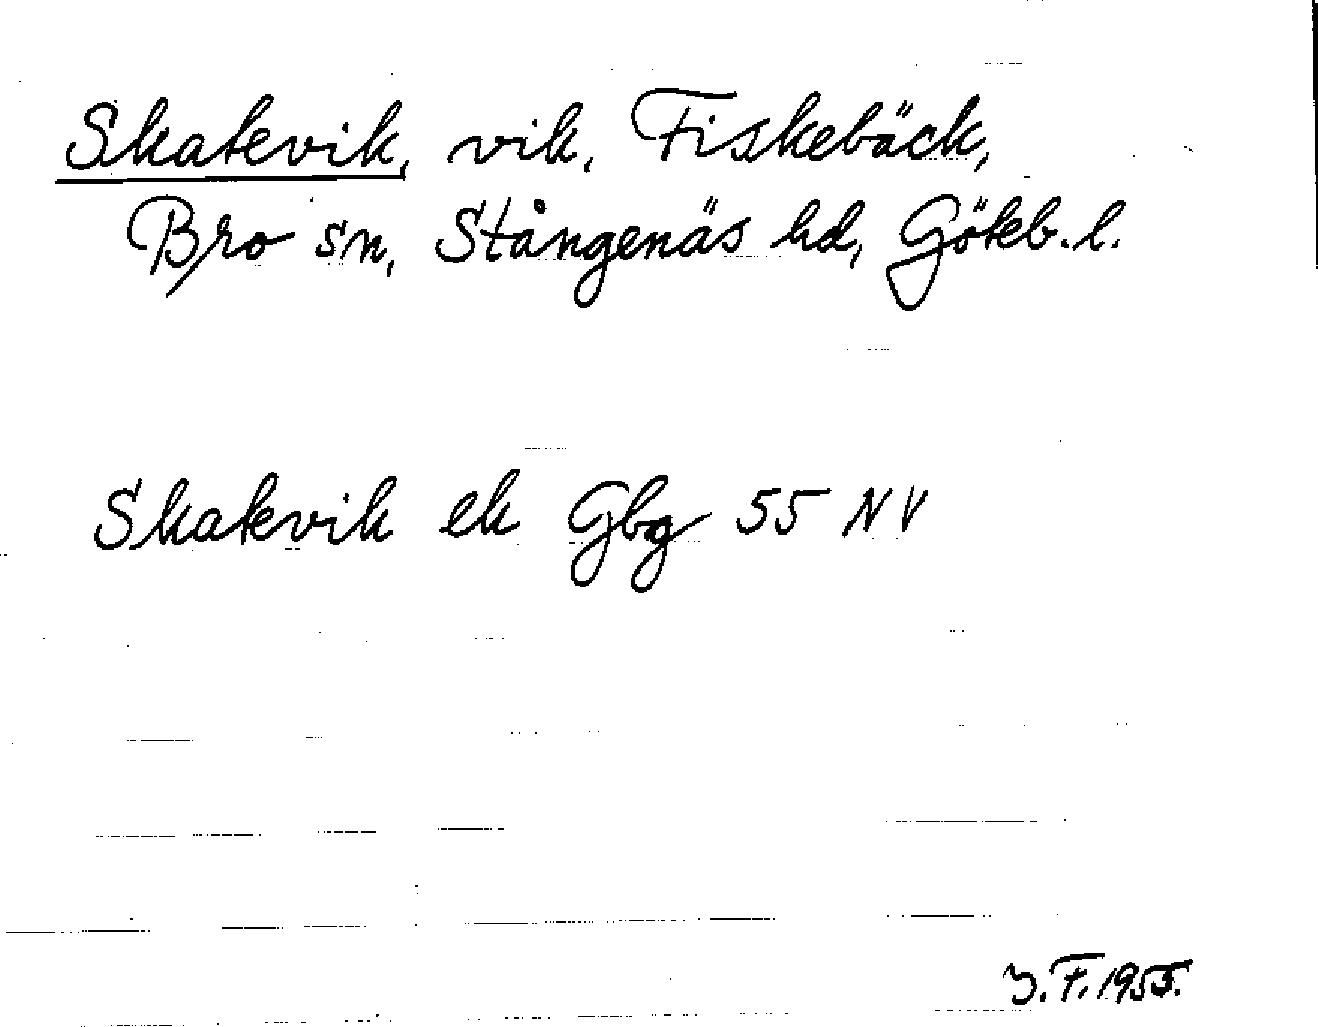 Skatevik, vik, Fiskebäck,
Bro sn, Stångenäs hd, Göteb. l.
Skatevik ek Gbg 55 NV
J. F. 1955.